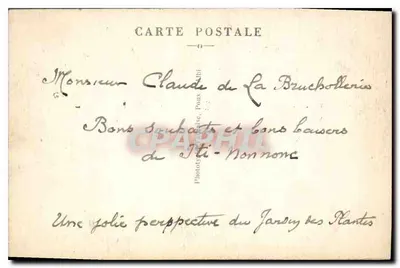 CARTE POSTALE
Monsieur Claude de La Bruchollerie
Bons souhaits et bons baisers
de Iti-nonnonc
Une jolie perspective du Jardin des Plantes